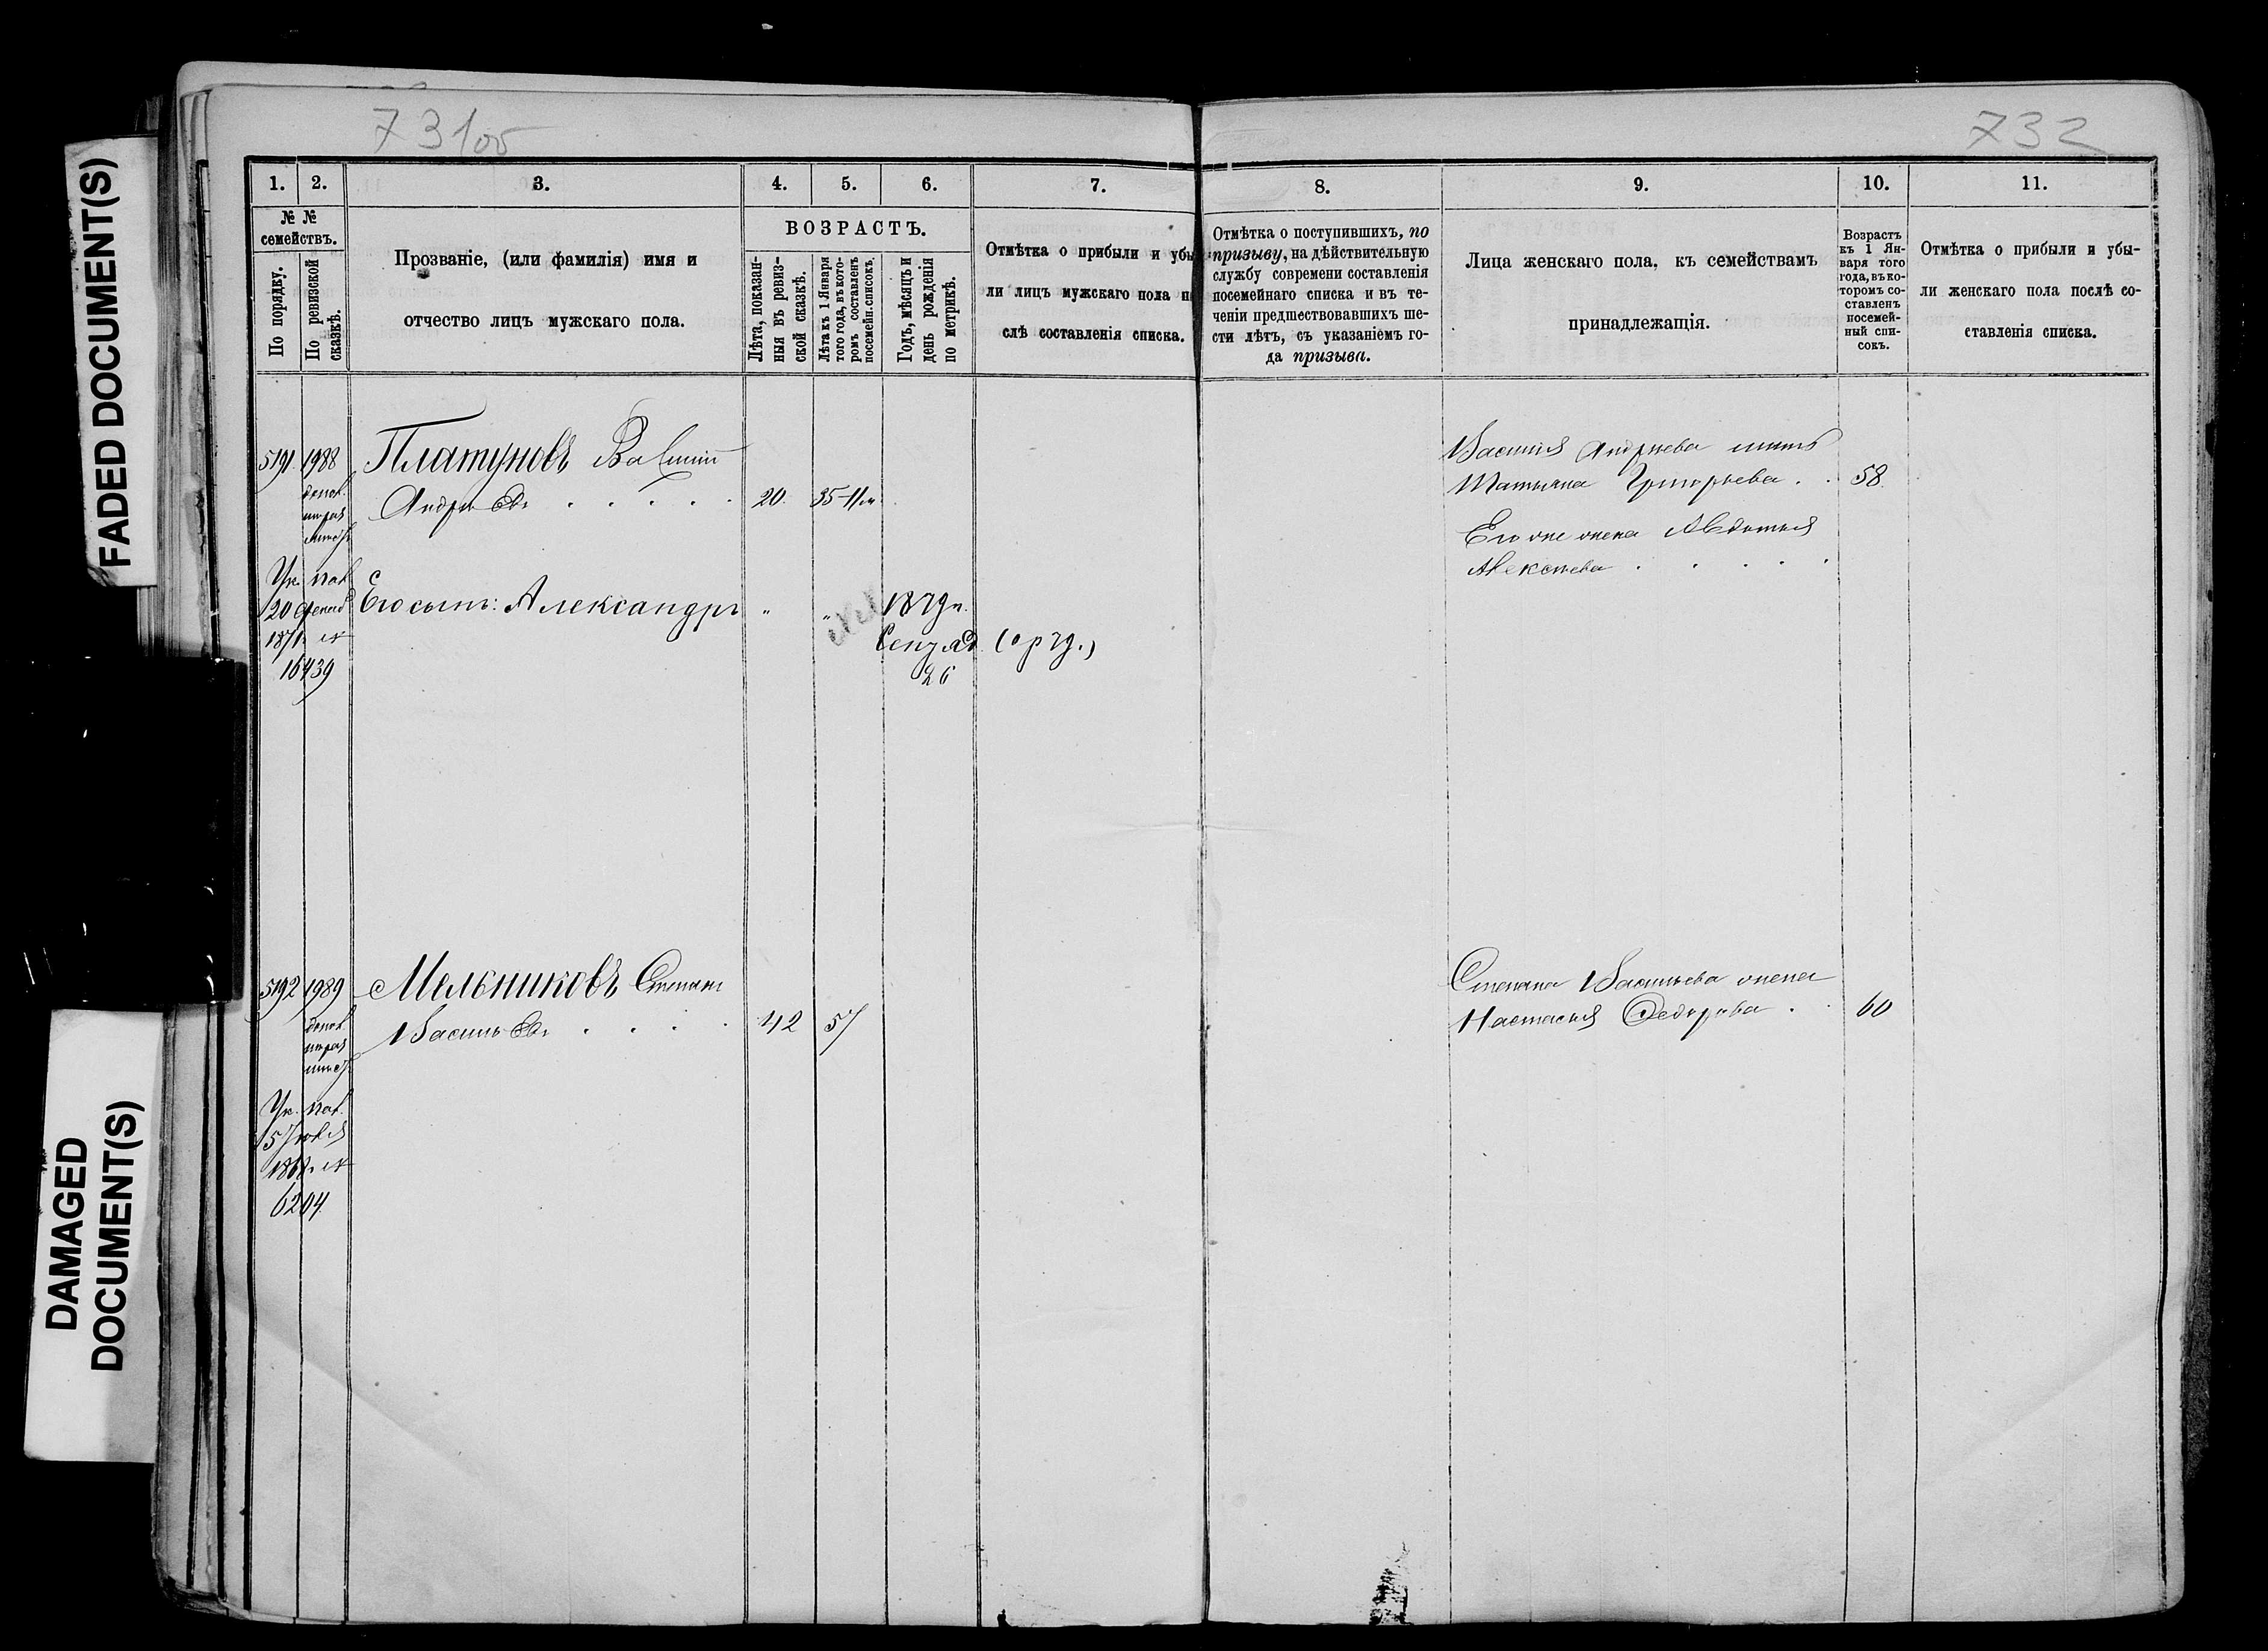 FADED DOCUMENT(S)
DAMAGED
DOCUMENT(S)
731об
732
1.
2.
3.
4.
5.
6.
7.
8.
9.
10.
11.
№ №
семействъ.
По порядку.
По ревизской
сказкѣ.
Прозваніе, (или фамилія) имя и
отчество лицъ мужскаго пола.
ВОЗРАСТЪ.
Лѣта, показан-
ныя въ ревиз-
ской сказкѣ.
Лѣта къ 1 Января
того года, въ кото-
ромъ составленъ
посемейн. списокъ.
Годъ, мѣсяцъ и
день рожденія
по метрикѣ.
Отмѣтка о прибыли и убы-
ли лицъ мужскаго пола по-
слѣ составленія списка.
Отмѣтка о поступившихъ, по
призыву, на дѣйствительную
службу современи составленія
посемейнаго списка и въ те-
ченіи предшествовавшихъ ше-
сти лѣтъ, съ указаніемъ го-
да призыва.
Лица женскаго пола, къ семействамъ
принадлежащія.
Возрастъ
къ 1 Ян-
варя того
года, въ ко-
торомъ со-
ставленъ
посемей-
ный спи-
сокъ.
Отмѣтка о прибыли и убы-
ли женскаго пола послѣ со-
ставленія списка.
5191 1988 Платуновъ Василій
Андреевъ . . . . . 20. 35
Ук. пал.
20
1871
16439
Его сынъ: Александръ „ „ 1879 г.
26
Василія Андреева мать
Татьяна Григорьева . . 58.
Его же жена Авдотья
Алексѣева . . . . .
5192 1989 Мельниковъ Степанъ
Васильевъ . . . . 42 57
Ук. пал.
5 Іюля
6204
Степана Васильева жена
Настасья Ѳедорова . . 60